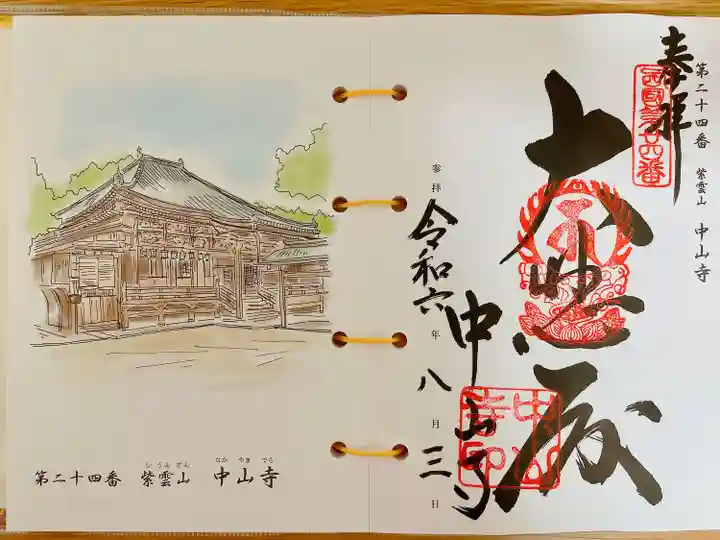 奉拝
第二十四番 紫雲山 中山寺
西國第廿四番
大悲殿
中山寺
中山寺印
参拝 令和六年八月三日
しうんざん なか やま でら
第二十四番 紫雲山 中山寺